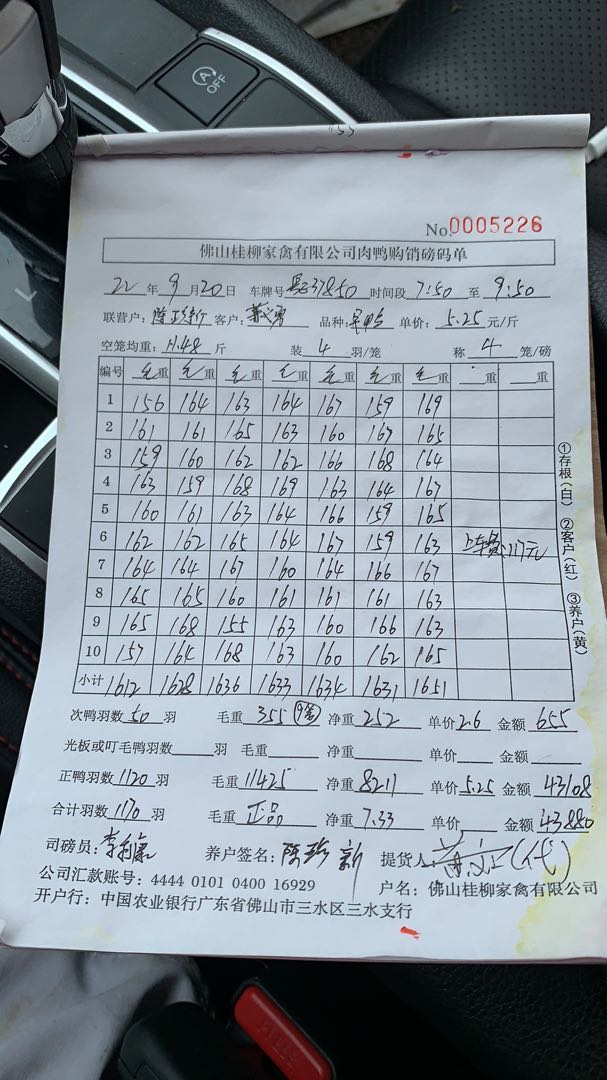 A
OFF
No.0005226
佛山桂柳家禽有限公司肉鸭购销磅码单
22年9月20日 车牌号 37850 时间段7:50至9:50
联营户: 客户: 品种: 单价:5.25元/斤
空笼均重:11.48斤 装4羽/笼 称4笼/磅
编号 毛重 毛重 毛重 毛重 毛重 毛重 毛重 重 重
1 156 164 163 164 167 159 169
2 161 161 165 163 160 167 165
3 159 160 162 162 166 168 164
4 163 159 168 169 163 164 167
5 160 161 163 164 166 159 165
6 162 162 165 164 167 159 163 上车费:117元
7 164 164 167 160 164 166 167
8 165 165 160 161 161 161 163
9 165 168 155 163 160 166 163
10 157 164 168 163 160 162 165
小计 1612 1628 1636 1633 1634 1631 1651
①存根(白) ②客户(红) ③养户(黄)
次鸭羽数50羽 毛重355 净重252 单价2.6 金额655
光板或叮毛鸭羽数 羽 毛重 净重 单价 金额
正鸭羽数1120羽 毛重11425 净重8211 单价5.25 金额43108
合计羽数1170羽 毛重正品 净重7.33 单价 金额43880
司磅员: 养户签名: 提货人 (代)
公司汇款账号: 4444 0101 0400 16929 户名: 佛山桂柳家禽有限公司
开户行: 中国农业银行广东省佛山市三水区三水支行